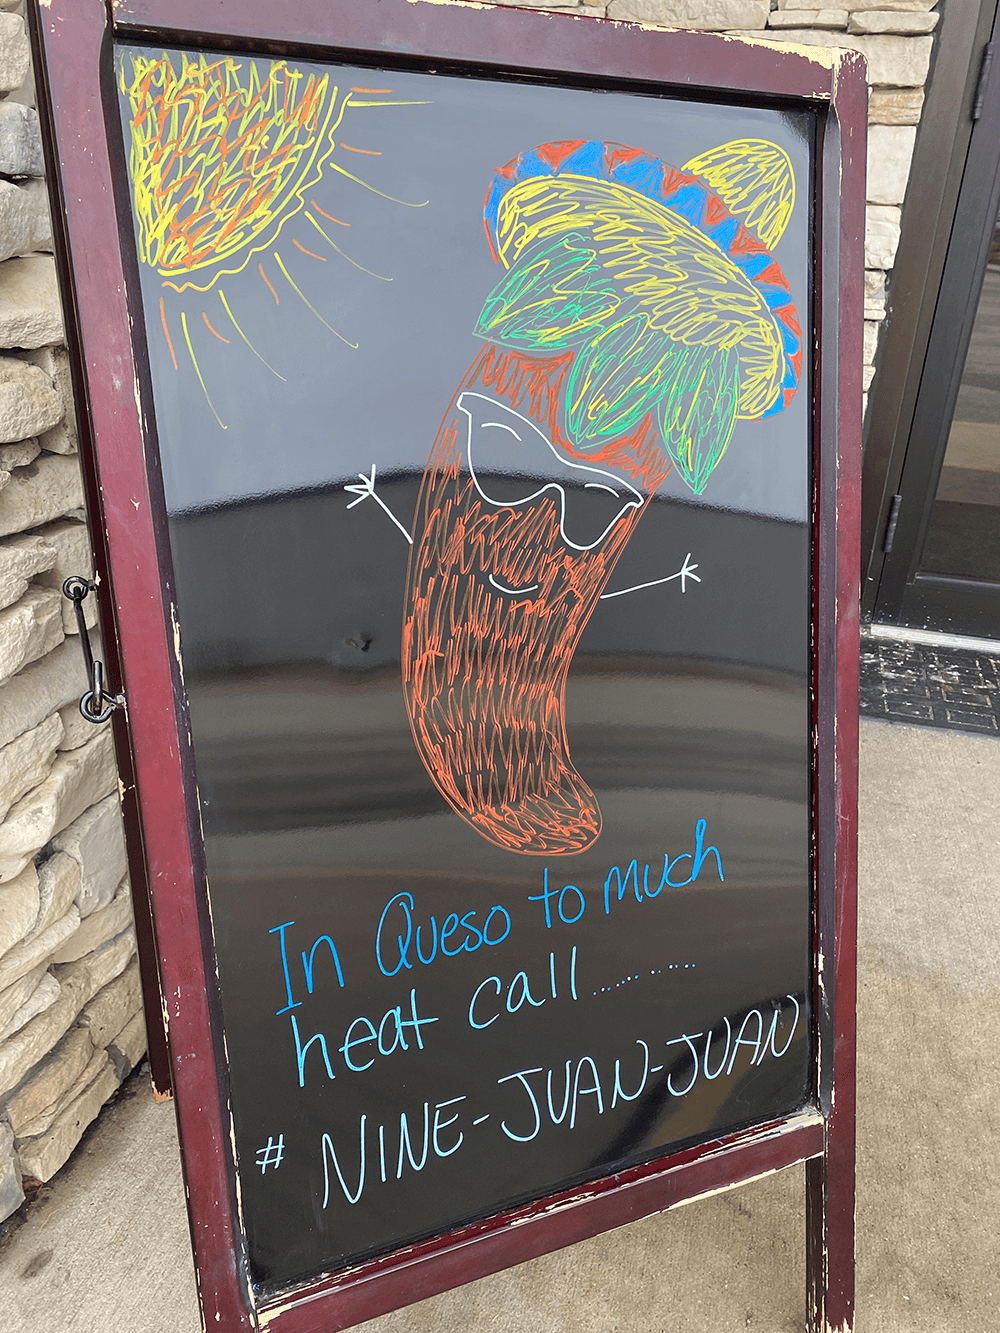 In Queso to much
heat call..........
# NINE-JUAN-JUAN